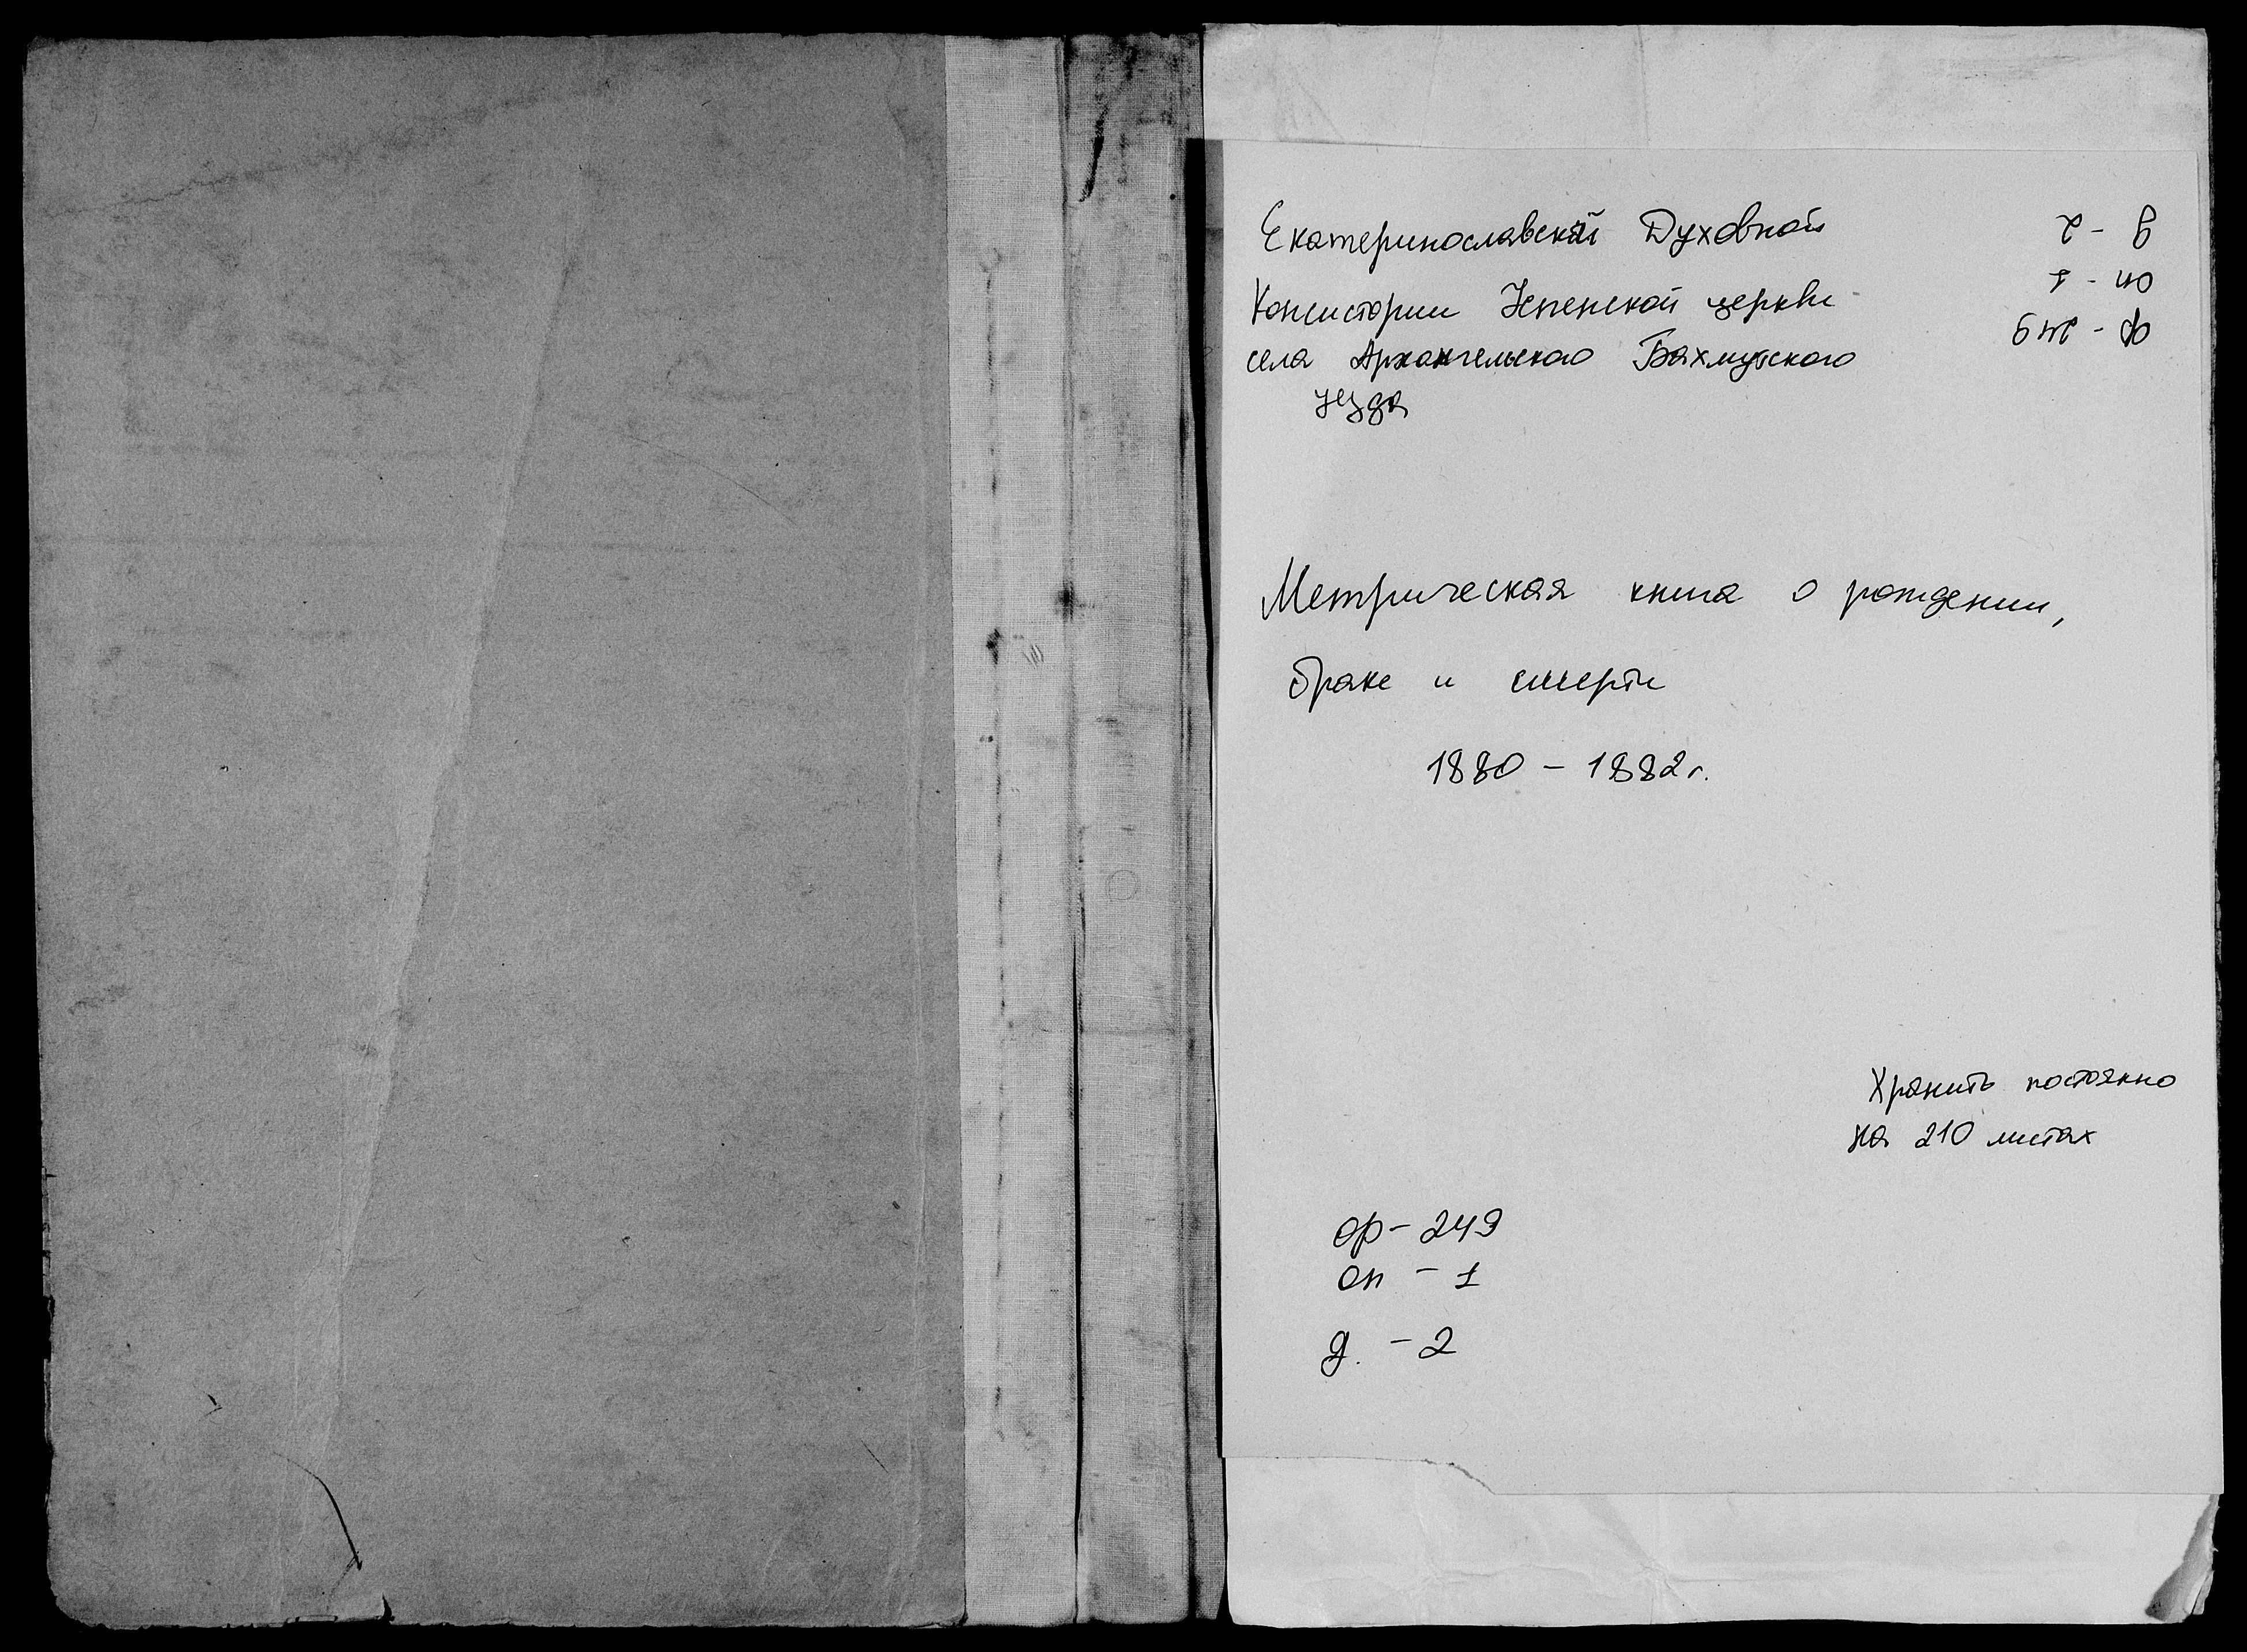 Екатеринославской Духовной
Консистории Успенской церкви
села Архангельского Бахмутского
уезда
д - 2
оп - 1
ф - 249
Метрическая книга о рождении,
браке и смерти
1880 - 1882 г.
Хранить постоянно
на 210 листах
ф - 249
оп - 1
д. - 2